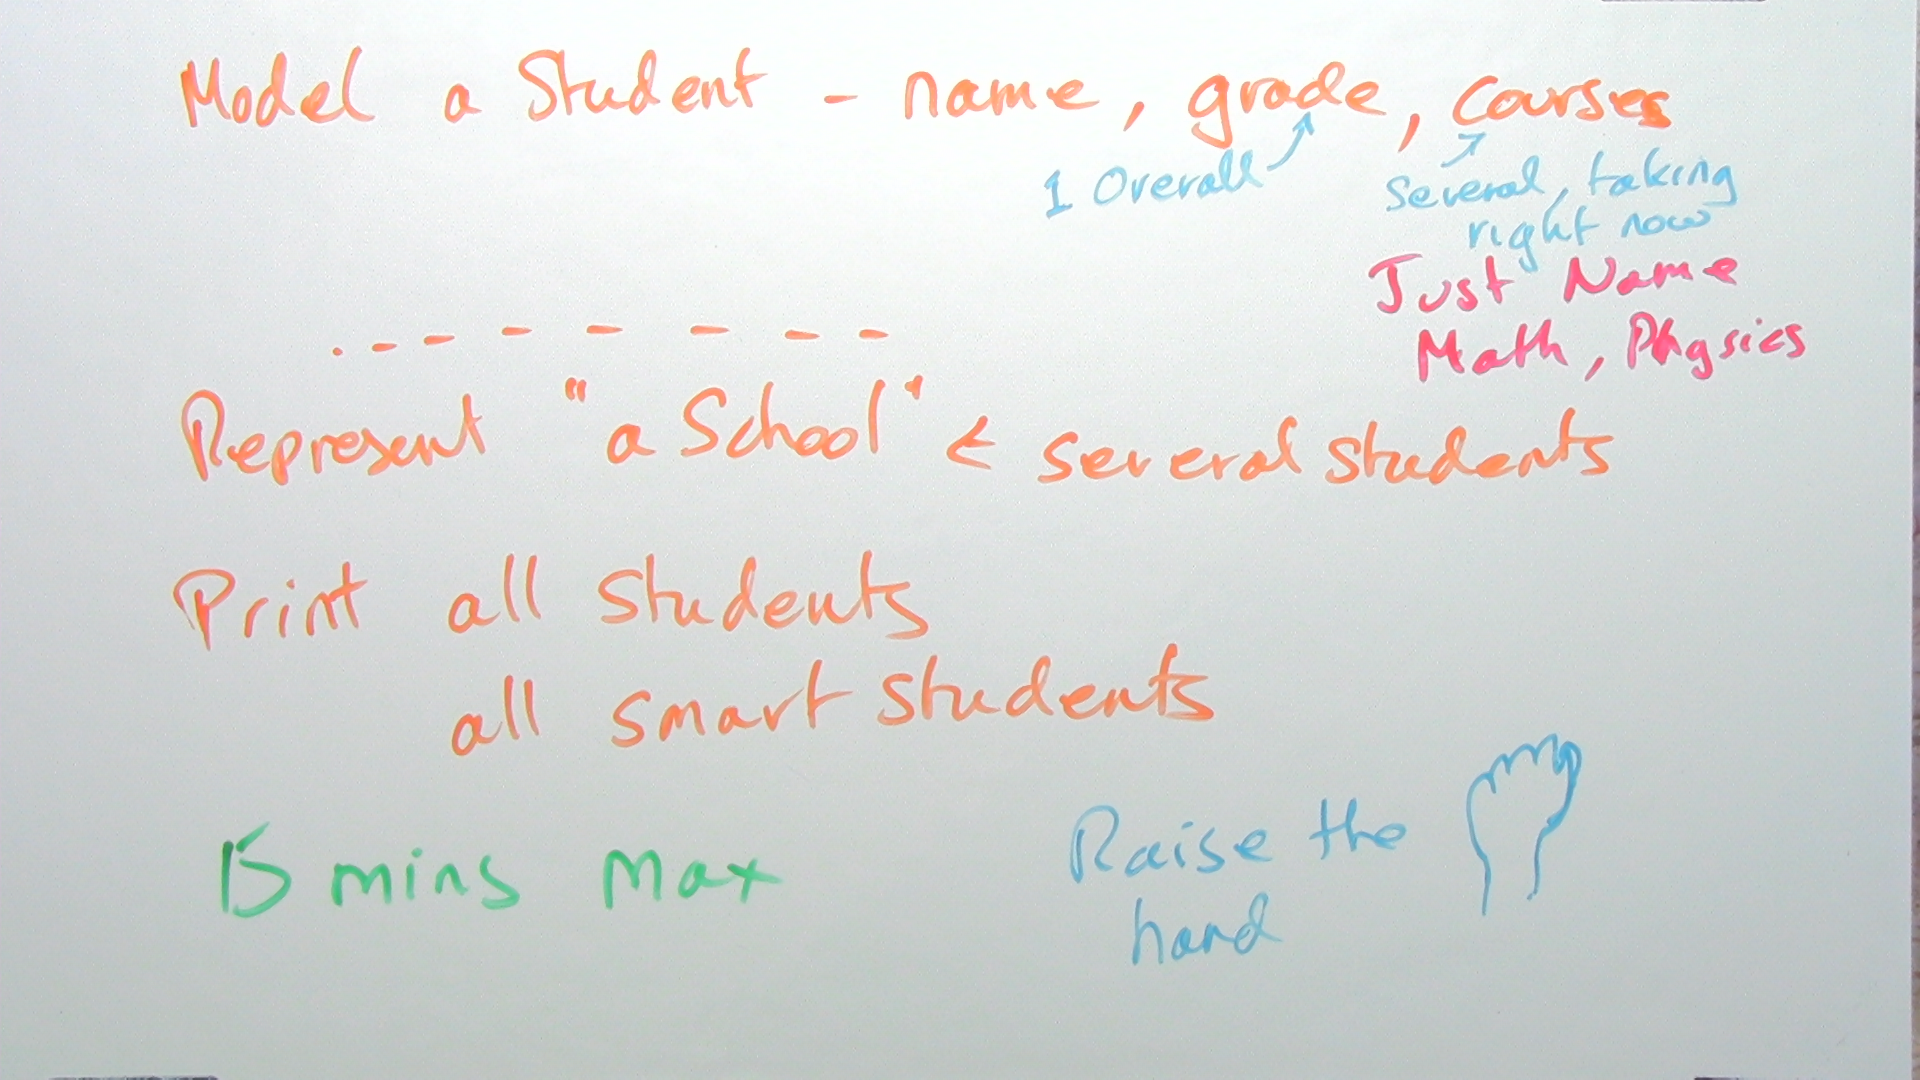 Model a Student - name, grade, courses
1 Overall
Several, taking
right now
Just Name
Math, Physics
Represent "a School" < several students
Print all students
all smart students
15 mins max
Raise the
hand